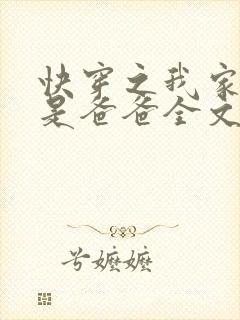 快穿之我家
是爸爸全文
兮嬷嬷